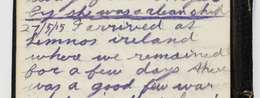 she was a clean ship
27/5/15 I arrived at
Lemnos ireland
where we remained
for a few days there
was a good few war